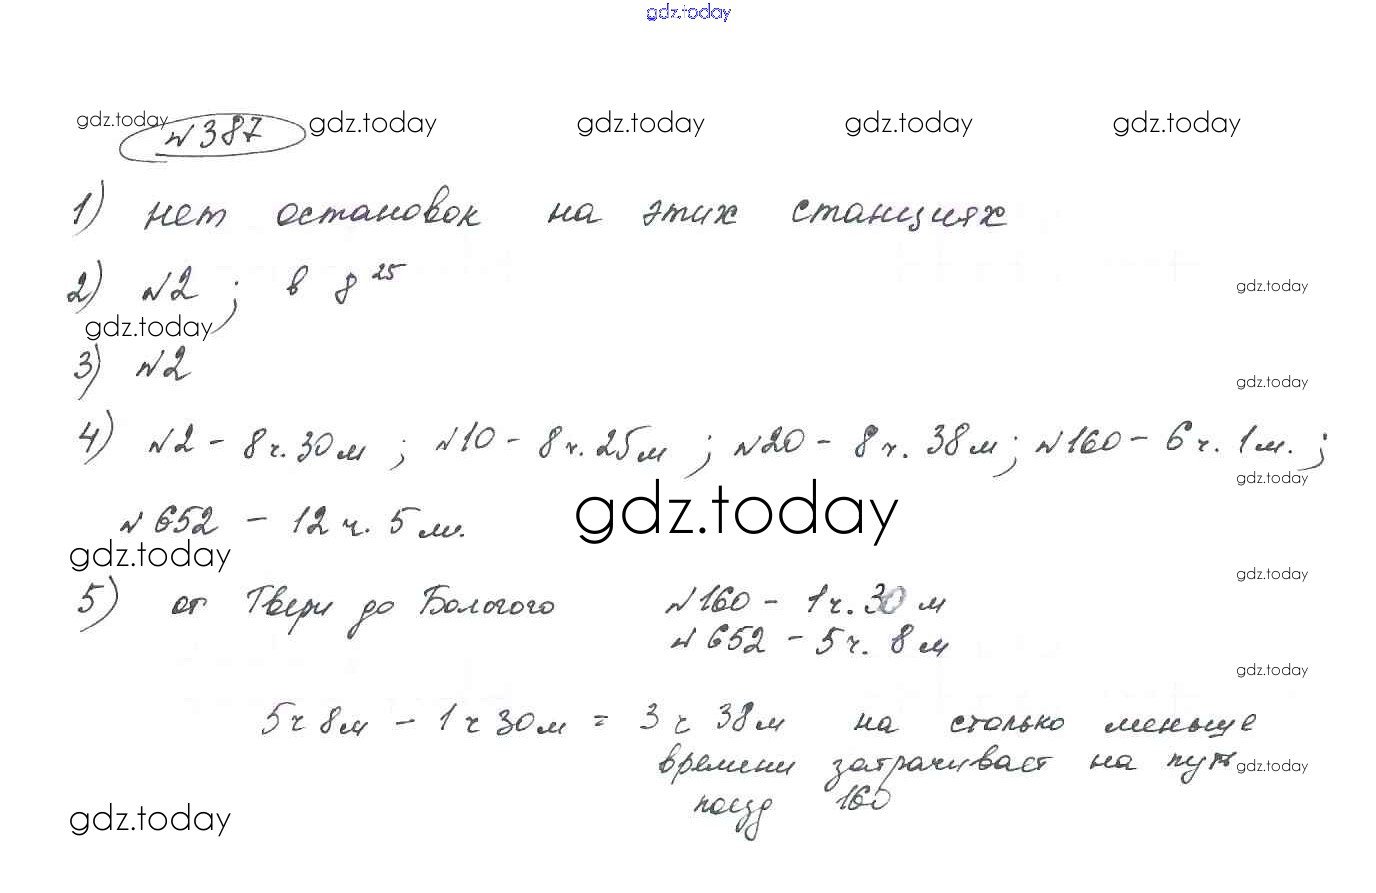 gdz.today
gdz.today gdz.today gdz.today gdz.today gdz.today
№387
1) нет остановок на этих станциях
2) №2 ; в 8 25
gdz.today
gdz.today
3) №2
gdz.today
4) №2 - 8 ч. 30 м ; №10 - 8 ч. 25 м ; №20 - 8 ч. 38 м ; №160 - 6 ч. 1 м. ;
gdz.today
№652 - 12 ч. 5 м.
gdz.today
gdz.today
gdz.today
5) от Твери до Бологого №160 - 1 ч. 30 м
№652 - 5 ч. 8 м
gdz.today
5 ч 8 м - 1 ч 30 м = 3 ч 38 м на столько меньше
времени затрачивает на путь
gdz.today
поезд 160
gdz.today